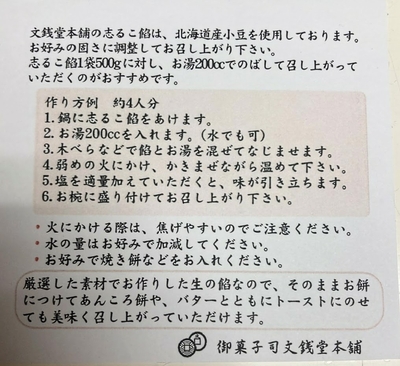 文銭堂本舗の志るこ餡は、北海道産小豆を使用しております。
お好みの固さに調整してお召し上がり下さい。
志るこ餡1袋500gに対し、お湯200ccでのばして召し上がって
いただくのがおすすめです。
作り方例 約4人分
1.鍋に志るこ餡をあけます。
2.お湯200ccを入れます。(水でも可)
3.木べらなどで餡とお湯を混ぜてなじませます。
4.弱めの火にかけ、かきまぜながら温めて下さい。
5.塩を適量加えていただくと、味が引き立ちます。
6.お椀に盛り付けてお召し上がり下さい。
・火にかける際は、焦げやすいのでご注意ください。
・水の量はお好みで加減してください。
・お好みで焼き餅などをお入れください。
厳選した素材でお作りした生の餡なので、そのままお餅
につけてあんころ餅や、バターとともにトーストにのせ
ても美味く召し上がっていただけます。
御菓子司文銭堂本舗